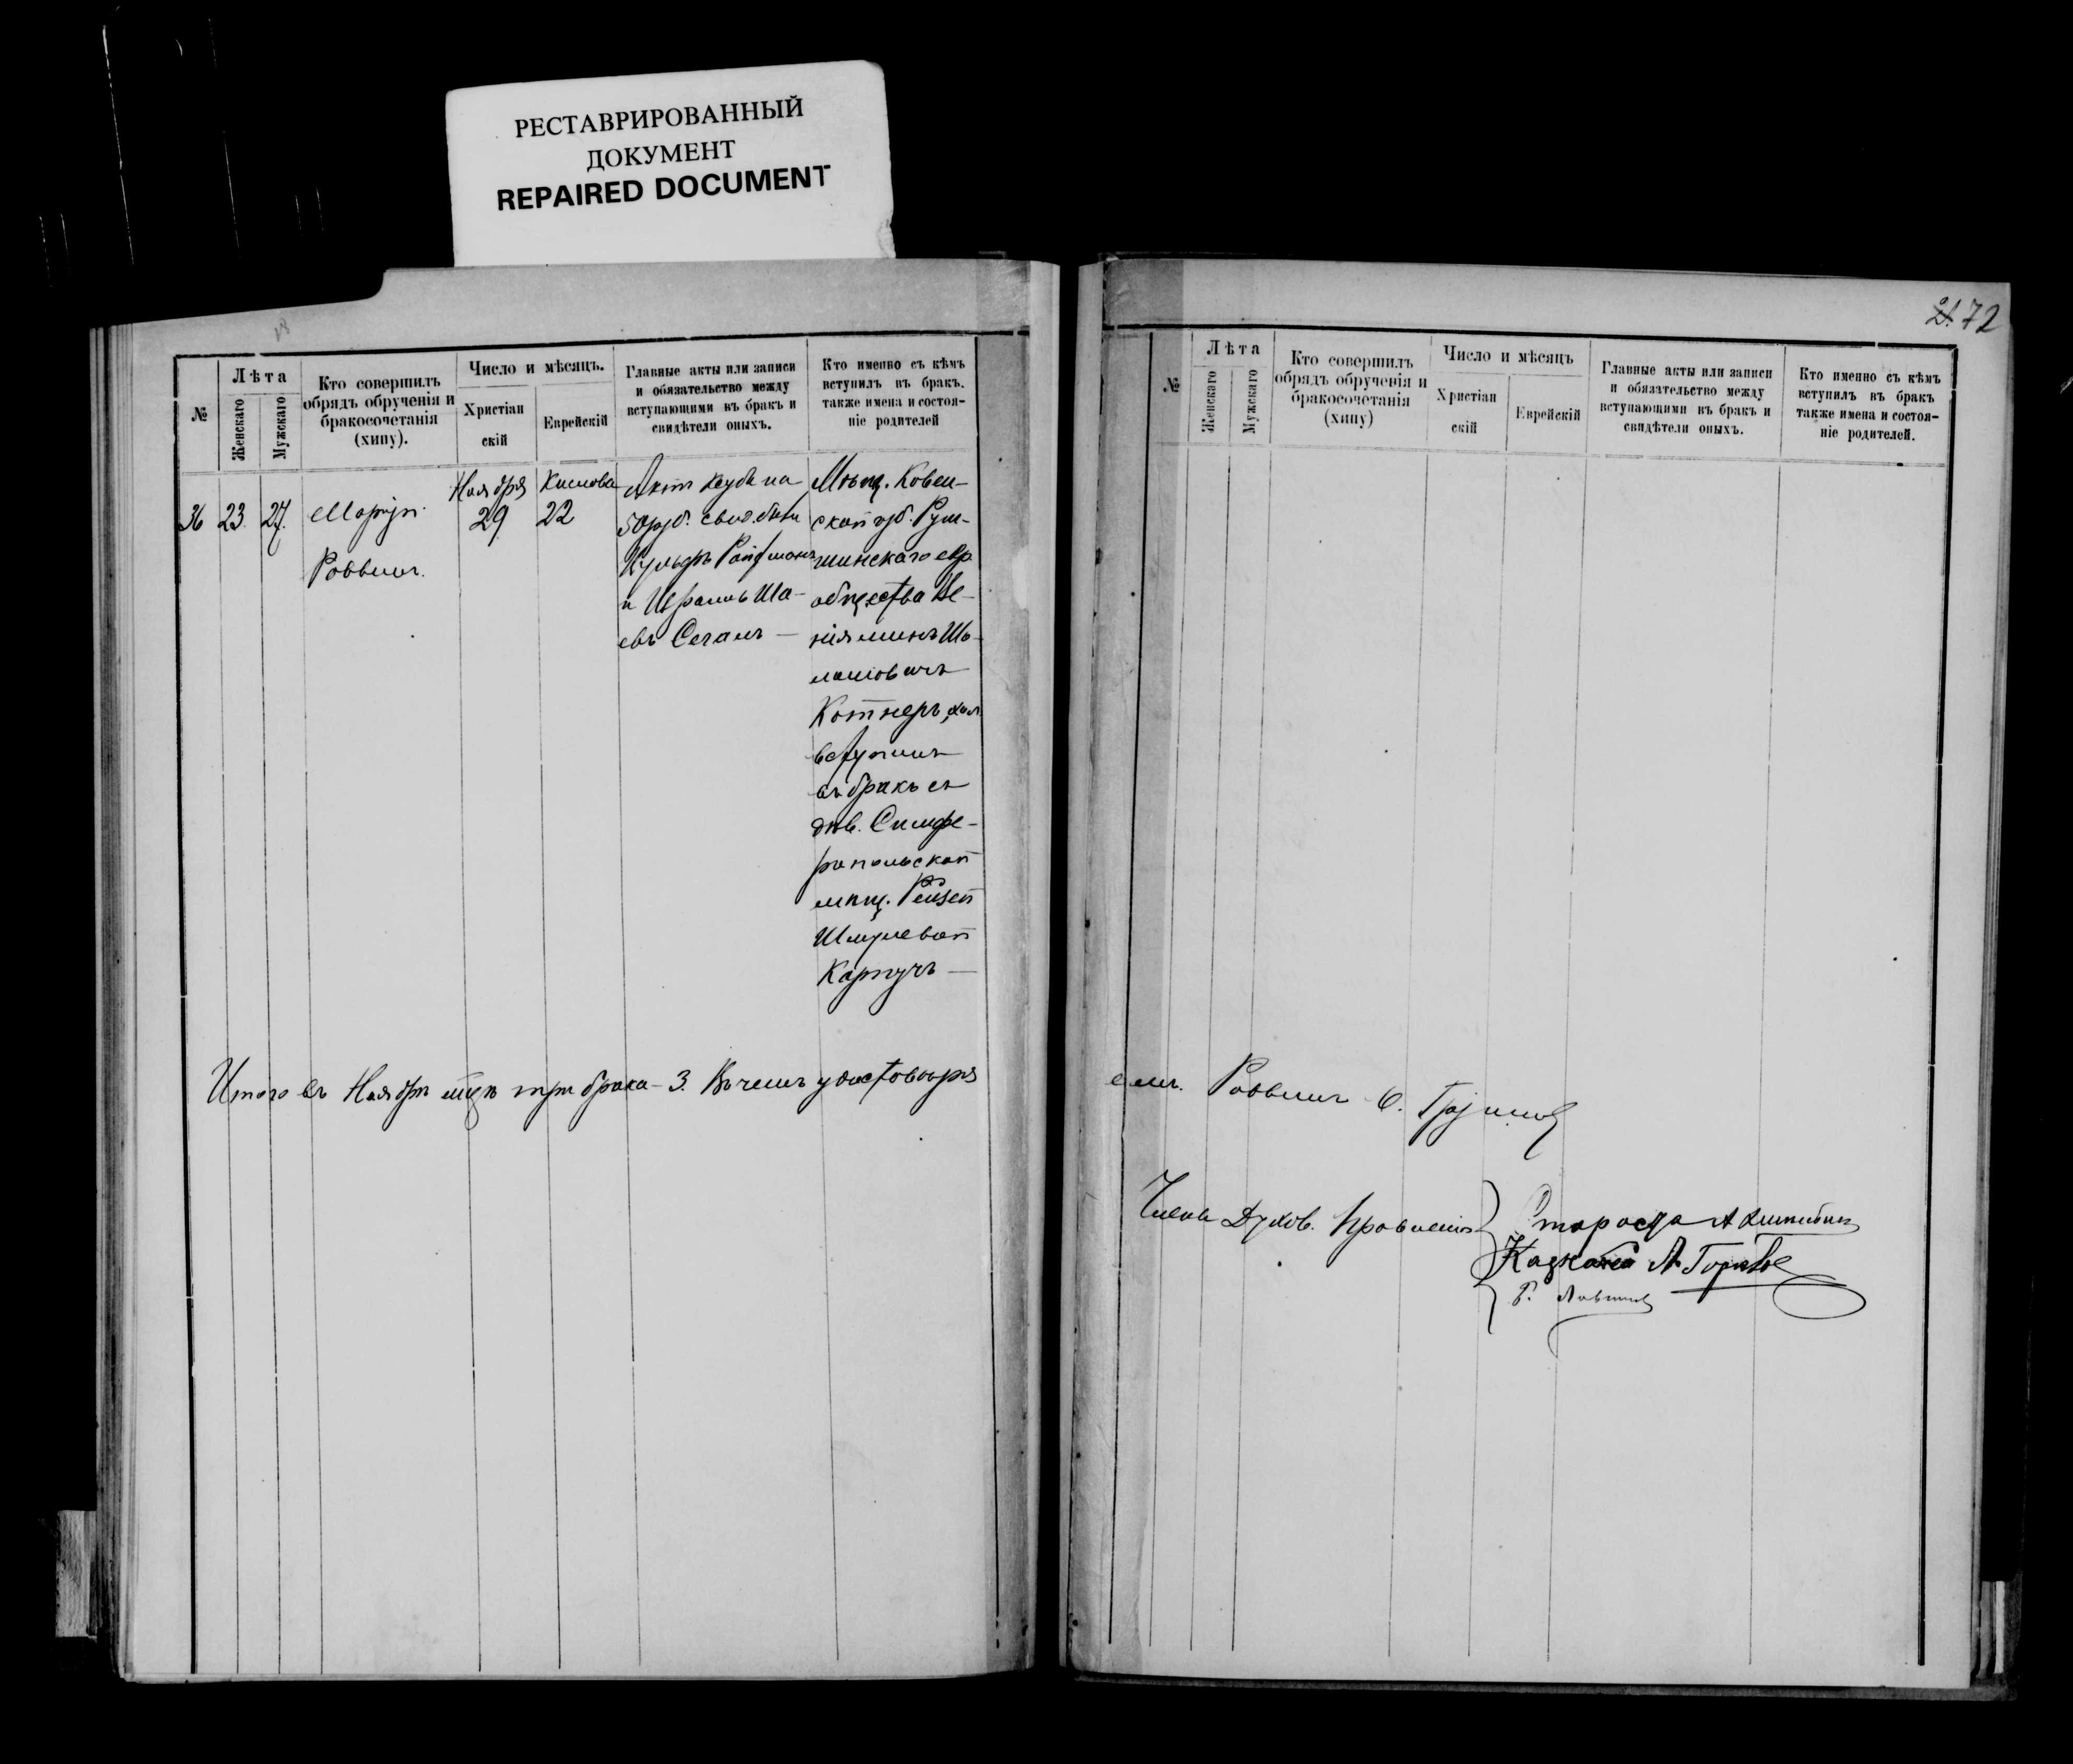 РЕСТАВРИРОВАННЫЙ
ДОКУМЕНТ
REPAIRED DOCUMENT
18
№
Лѣта
Женскаго
Мужскаго
Кто совершилъ
обрядъ обрученія и
бракосочетанія
(хипу).
Число и мѣсяцъ.
Христіан
скій
Еврейскій
Главные акты или записи
и обязательство между
вступающими въ бракъ и
свидѣтели оныхъ.
Кто именно съ кѣмъ
вступилъ въ бракъ.
также имена и состоя-
ніе родителей
36
23.
27.
Раввинъ.
Ноября
29
Кислова
22
Актъ на
50 руб. свид. были
и Ша-
евъ Сеганъ —
Мѣщ. Ковен-
ской губ. Рум-
шинскаго евр.
общества Ве-
ніяминъ Шо-
ломовичъ
Котнеръ, хол.
вступилъ
въ бракъ съ
дѣв. Симфе-
ропольской
мѣщ. Рейзей
Шмулевой
Карпучъ —
Итого въ Ноябрѣ мцѣ три брака - 3. Въ чемъ удостовѣря
21. 72
№
Лѣта
Женскаго
Мужскаго
Кто совершилъ
обрядъ обрученія и
бракосочетанія
(хипу)
Число и мѣсяцъ
Христіан
скій
Еврейскій
Главные акты или записи
и обязательство между
вступающими въ бракъ и
свидѣтели оныхъ.
Кто именно съ кѣмъ
вступилъ въ бракъ
также имена и состоя-
ніе родителей.
емъ. Раввинъ
Члены Духов. Правленія
Староста А
Казначей А.